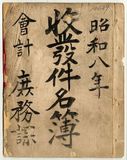 昭和八年
收發件名簿
會計 庶務課